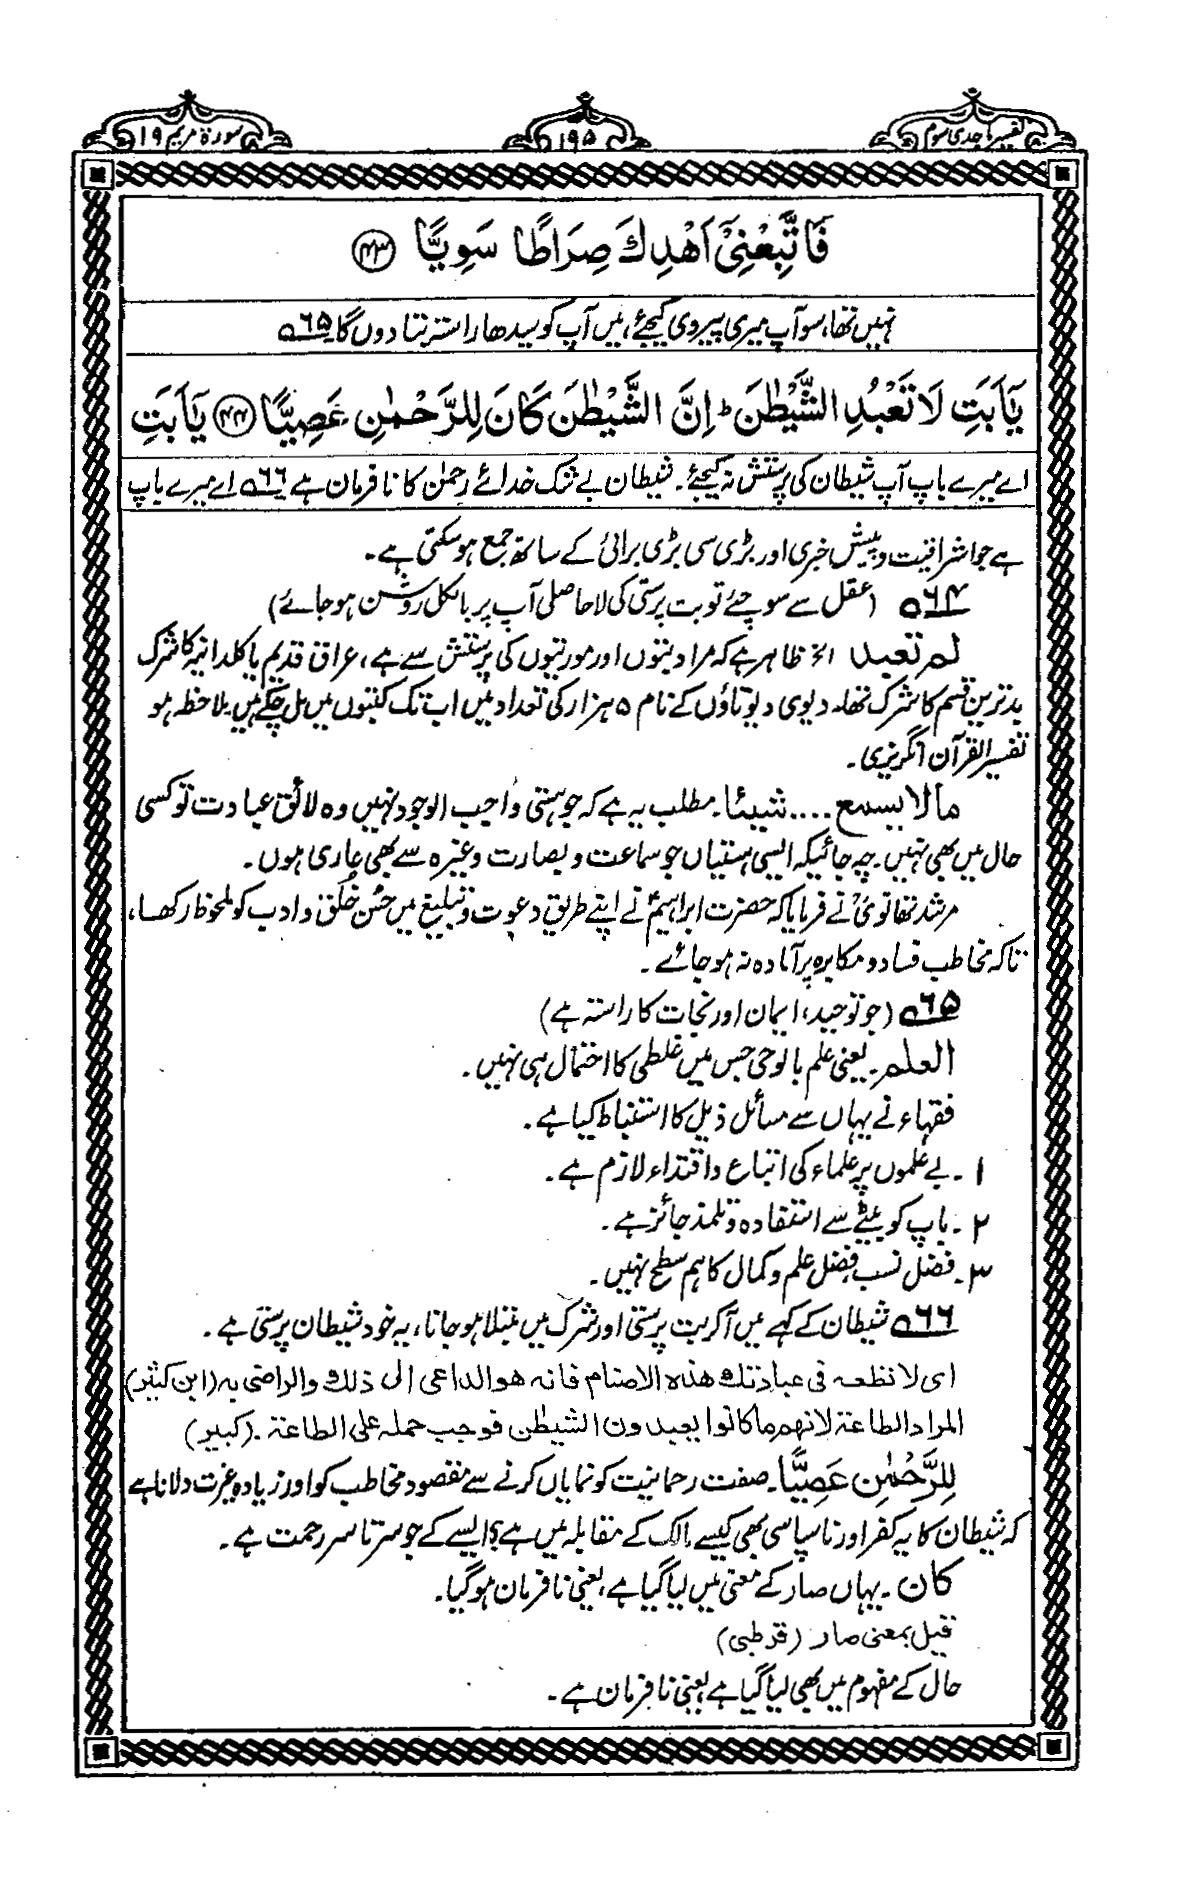 تفسیر ماجدی سوم
۱۹۵
سورۃ مریم ۱۹
فَاتَّبِعْنِیْۤ اَهْدِكَ صِرَاطًا سَوِیًّا ۝۴۳
نہیں تھا، سو آپ میری پیروی کیجئے، میں آپ کو سیدھا راستہ بتا دوں گا ۵۶۵
یٰۤاَبَتِ لَا تَعْبُدِ الشَّیْطٰنَ ؕ اِنَّ الشَّیْطٰنَ كَانَ لِلرَّحْمٰنِ عَصِیًّا ۝۴۴ یٰۤاَبَتِ
اے میرے باپ آپ شیطان کی پرستش نہ کیجئے۔ شیطان بے شک خدائے رحمٰن کا نافرمان ہے ۵۶۶ اے میرے باپ
ہے جو اشراقیت و پیش خبری اور بڑی سی بڑی برائی کے ساتھ جمع ہو سکتی ہے۔
۵۶۴ (عقل سے سوچئے تو بت پرستی کی لاحاصلی آپ پر بالکل روشن ہو جائے)
لم تعبد الخ ظاہر ہے کہ مراد بتوں اور مورتیوں کی پرستش سے ہے، عراق قدیم یا کلدانیہ کا شرک
بدترین قسم کا شرک تھا۔ دیوی دیوتاؤں کے نام ۵ ہزار کی تعداد میں اب تک کتبوں میں مل چکے ہیں۔ ملاحظہ ہو
تفسیر القرآن انگریزی۔
مالا یسمع .... شیئا۔ مطلب یہ ہے کہ جو ہستی واجب الوجود نہیں وہ لائق عبادت تو کسی
حال میں بھی نہیں۔ چہ جائیکہ ایسی ہستیاں جو سماعت و بصارت وغیرہ سے بھی عاری ہوں۔
مرشد تھانویؒ نے فرمایا کہ حضرت ابراہیمؑ نے اپنے طریق دعوت و تبلیغ میں حسُن خُلق و ادب کو ملحوظ رکھا،
تاکہ مخاطب فساد و مکابرہ پر آمادہ نہ ہو جائے۔
۵۶۵ (جو توحید، ایمان اور نجات کا راستہ ہے)
العلم۔ یعنی علم بالوحی جس میں غلطی کا احتمال ہی نہیں۔
فقہاء نے یہاں سے مسائل ذیل کا استنباط کیا ہے۔
۱۔ بے علموں پر علماء کی اتباع و اقتداء لازم ہے۔
۲۔ باپ کو بیٹے سے استفادہ و تلمذ جائز ہے۔
۳۔ فضل نسب، فضل علم و کمال کا ہم سطح نہیں۔
۵۶۶ شیطان کے کہے میں آکر بت پرستی اور شرک میں مبتلا ہو جانا، یہ خود شیطان پرستی ہے۔
ای لا تطعه فی عبادتك هذه الاصنام فانه هو الداعی الی ذلك والراضی به (ابن کثیر)
المراد الطاعة لانهم ما كانوا یعبدون الشیطٰن فوجب حمله علی الطاعة۔ (کبیر)
لِلرَّحْمٰنِ عَصِیًّا۔ صفت رحمانیت کو نمایاں کرنے سے مقصود مخاطب کو اور زیادہ غیرت دلانا ہے
کہ شیطان کا یہ کفر اور ناسپاسی بھی کیسے مالک کے مقابلہ میں ہے؟ ایسے کے جو سرتاسر رحمت ہے۔
كان۔ یہاں صار کے معنی میں لیا گیا ہے، یعنی نافرمان ہو گیا۔
قیل بمعنی صار (قرطبی)
حال کے مفہوم میں بھی لیا گیا ہے، یعنی نافرمان ہے۔